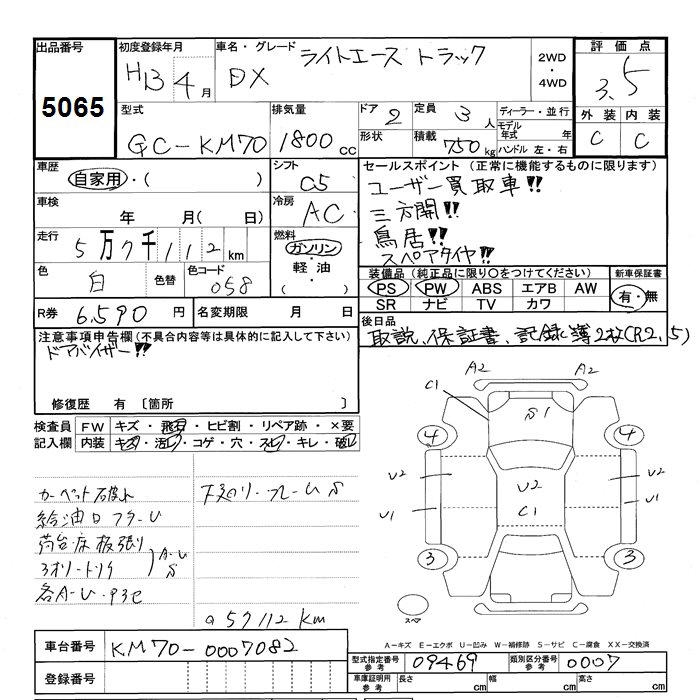 出品番号 初度登録年月 車名・グレード 評価点
5065 H13 4月 DX ライトエース トラック 2WD・4WD 3.5
型式 排気量 ドア 2 定員 3人 ディーラー・並行 外装 内装
GC-KM70 1800cc 形状 積載 750kg モデル年式 年 C C
ハンドル 左・右
車歴 シフト セールスポイント (正常に機能するものに限ります)
自家用・( ) C5 ユーザー買取車!!
車検 冷房 三方開!!
年 月( 日) AC 鳥居!!
走行 燃料 スペアタイヤ!!
5万7千112km ガソリン・軽油・( )
色 白 色替 色コード 058
装備品(純正品に限り○をつけてください) 新車保証書
PS PW ABS エアB AW 有・無
SR ナビ TV カワ
R券 6,590円 名変期限 月 日
後日品
取説、保証書、記録簿2枚(R2,5)
注意事項申告欄(不具合内容等は具体的に記入して下さい)
ドアバイザー!!
修復歴 有 〔箇所 〕
検査員記入欄 FW キズ・飛石・ヒビ割・リペア跡・×要
内装 キズ・汚れ・コゲ・穴・スレ・キレ・破レ
A2 A2
C1 S1
4 4
U2 U2 U2
U1 C1 U1
3 3
スペア
給油口フタ-U
荷台床板張り
A-U
S
各A-U・P3ヒ
@57112km
A-キズ E-エクボ U-凹み W-補修跡 S-サビ C-腐食 XX-交換済
車台番号 KM70-0007082
型式指定番号 参考 09469 類別区分番号 参考 0007
登録番号
車庫証明用 参考 長さ cm 幅 cm 高さ cm